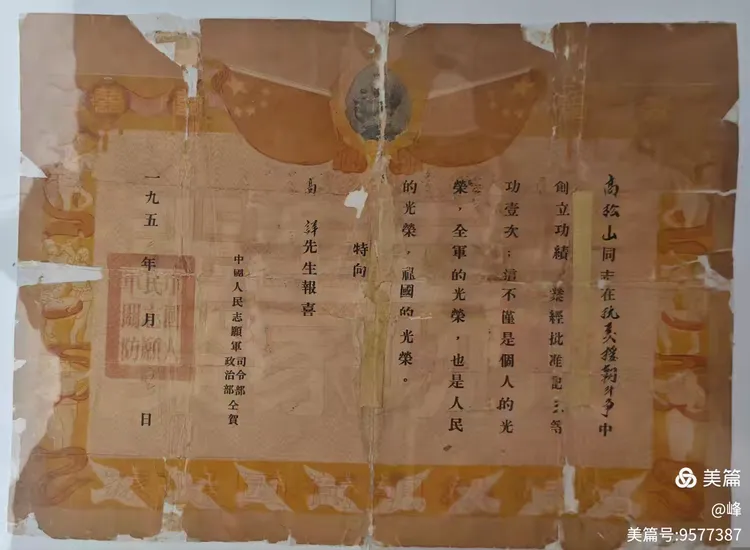 高松山同志在抗美援朝斗爭中
創立功績,業經批准記三等
功壹次;這不僅是個人的光
榮,全軍的光榮,也是人民
的光榮,祖國的光榮。
特向
高祥先生報喜
中國人民志願軍司令部政治部仝賀
一九五 年 月 日
美篇
@峰
美篇号:9577387